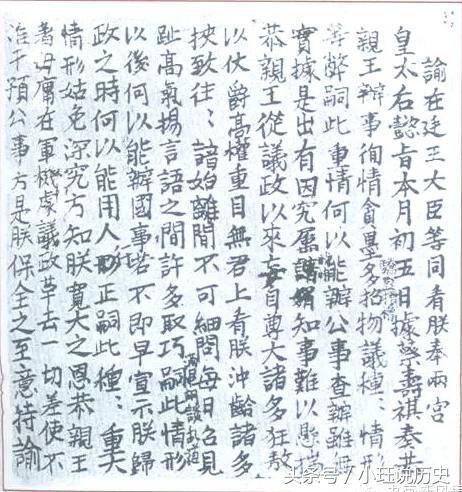 諭在廷王大臣等同看朕奉兩宮
皇太后懿旨本月初五日據蔡壽祺奏恭
親王辦事徇情貪墨驕盈攬權多招物議種:情形
等弊嗣此重情何以能辦公事查辦雖無
實據是出有因究屬知事難以懸揣
恭親王從議政以來妄自尊大諸多狂敖
以仗爵高權重目無君上看朕沖齡諸多
挾致往:諳始離間不可細問每日召見
趾高氣揚言語之間許多取巧滿口胡談亂道嗣此情形
以後何以能辦國事若不即早宣示朕歸
政之時何以能用人行正嗣此種:重大
情形姑免深究方知朕寬大之恩恭親王
著毋庸在軍機處議政革去一切差使不
准干預公事方是朕保全之至意特諭
头条号/小玨说历史